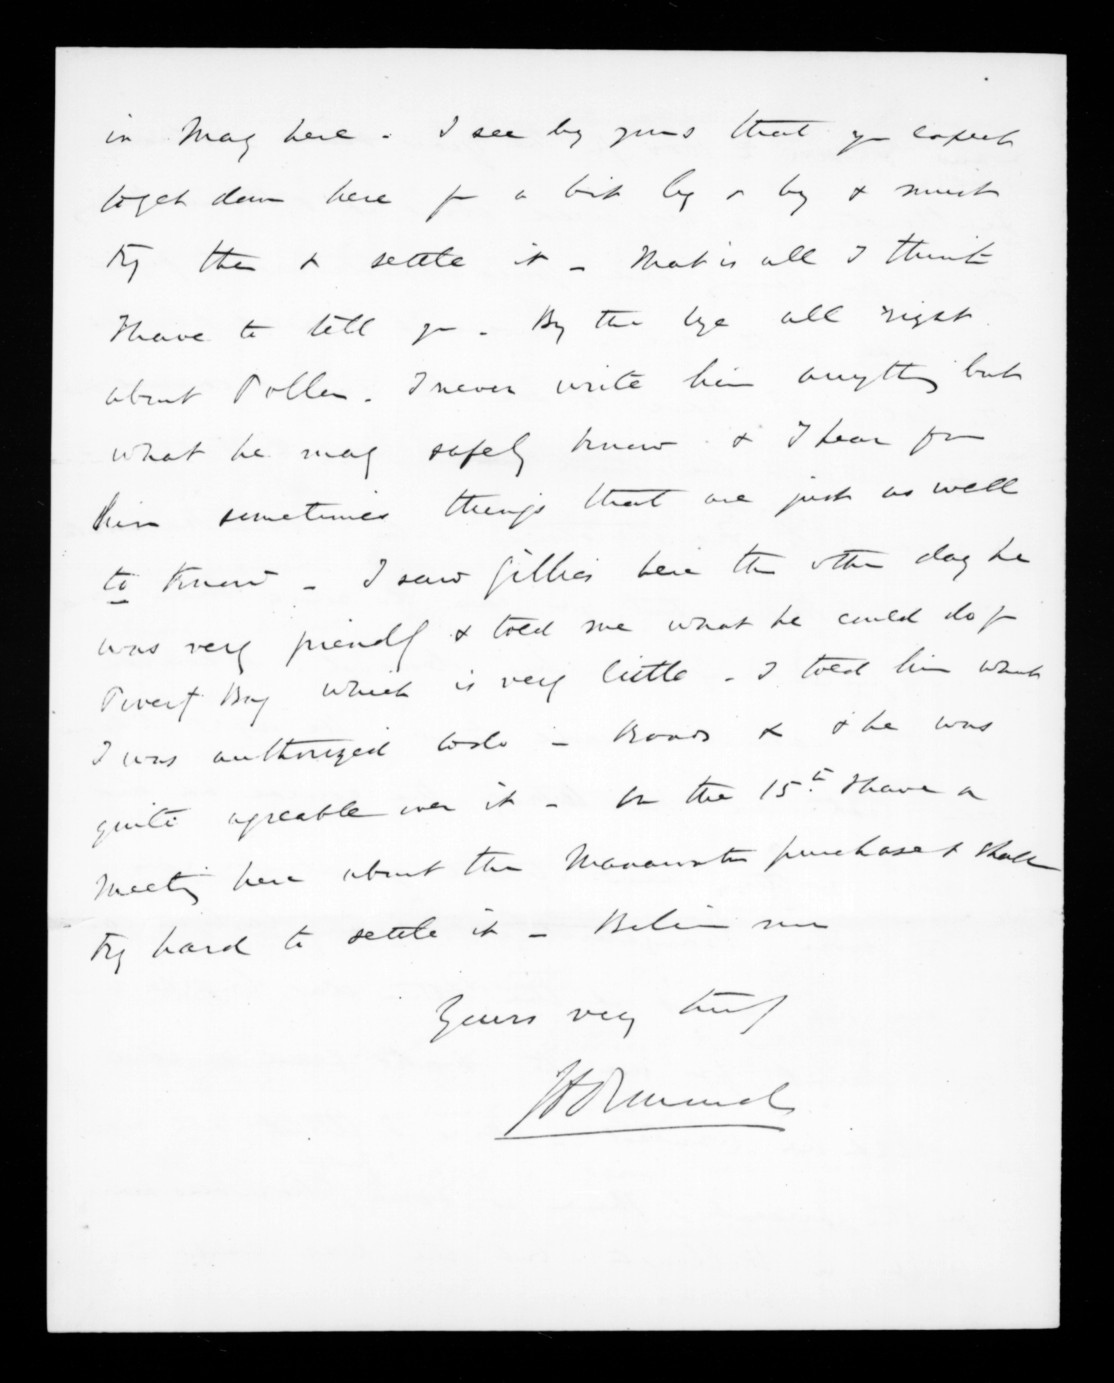 in May here - I see by yours that you expect
to get down here for a bit by & by & must
try then & settle it - That is all I think
I have to tell you - By the bye all right
about Pollen. I never write him anything but
what he may safely know & I hear from
him sometimes things that are just as well
to know - I saw Gillies here the other day he
was very friendly & told me what he could do for
Poverty Bay which is very little - I told him what
I was authorized to do - Roads & & he was
quite agreeable over it - On the 15th I have a
meeting here about the Manawatu purchase & shall
try hard to settle it - Believe me
Yours very truly
J D Ormond